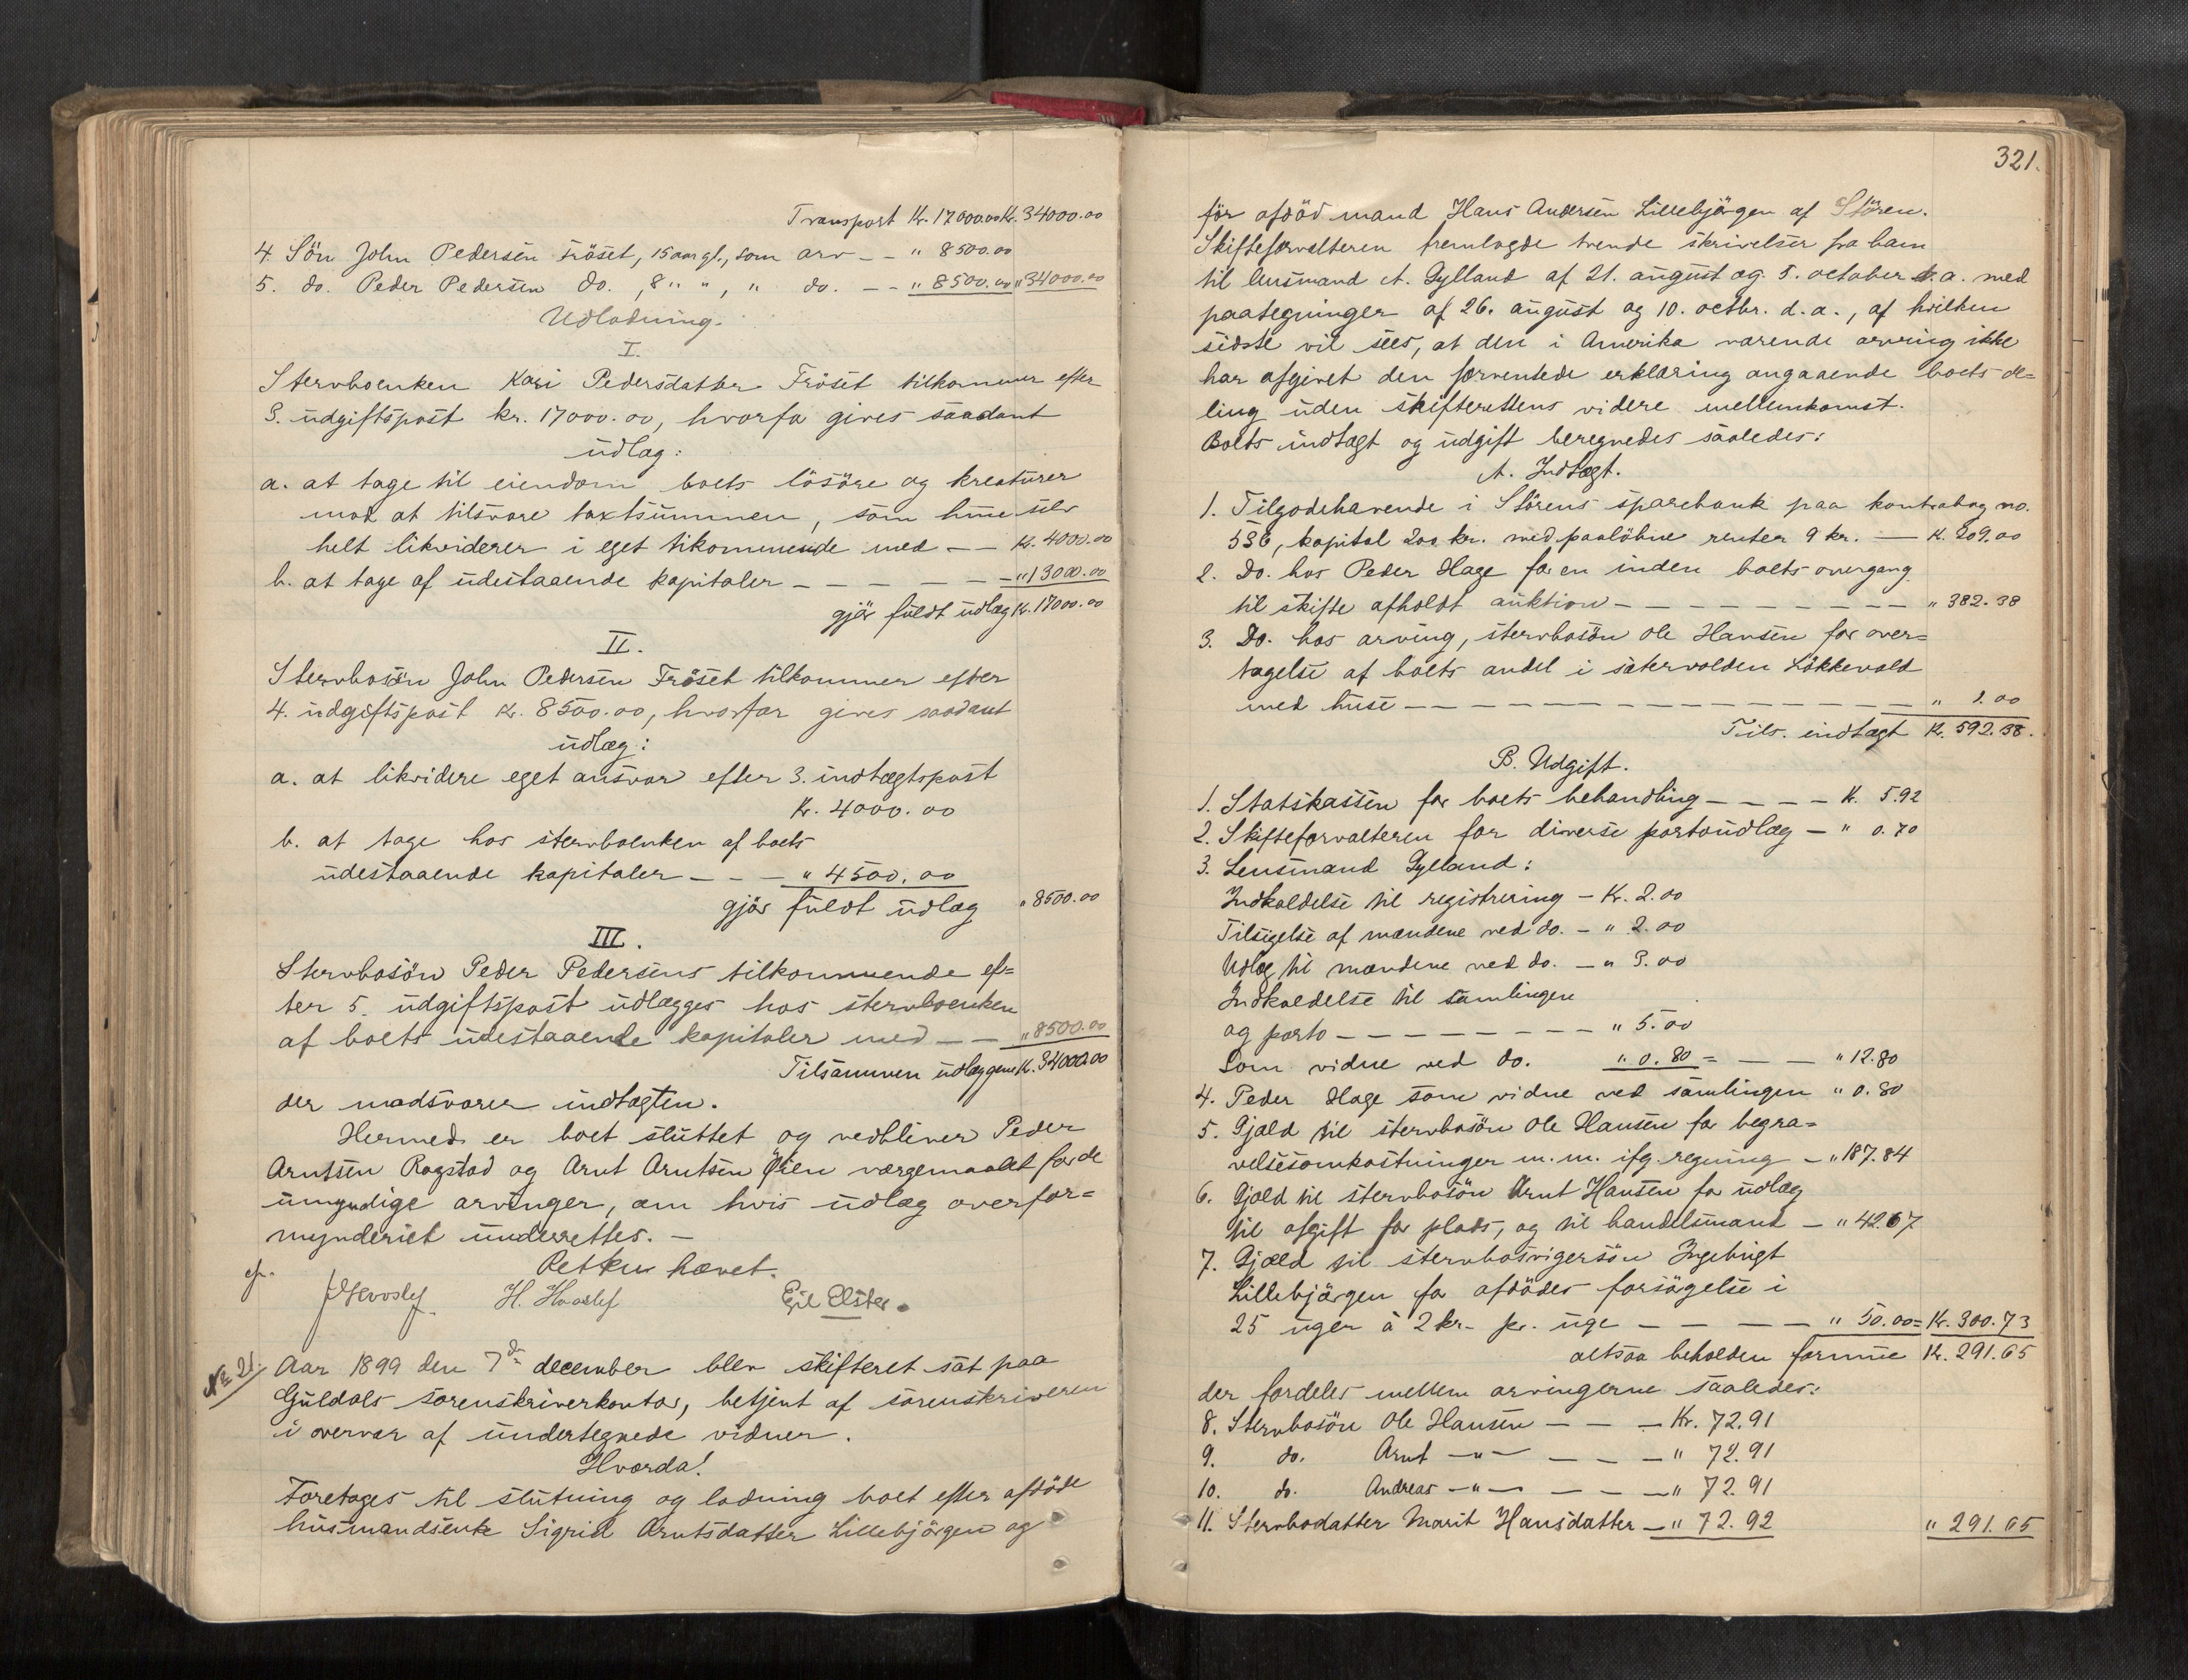 Transport Kr. 17000.00 Kr. 34000.00
4. Sön John Pedersen Fröset, 15 aar gl., som arv - - " 8500.00
5. do. Peder Pedersen do. , 8 " " , " do. - - " 8500.00 " 34000.00
Udlodning.
I.
Stervboenken Kari Pedersdatter Fröset tilkommer efter
3. udgiftspost kr. 17000.00, hvorfor gives saadant
udlæg:
a. at tage til eiendom boets lösöre og kreaturer
mod at tilsvare taxtsummen, som hun selv
helt likviderer i eget tilkommende med - - Kr. 4000.00
b. at tage af udestaaende kapitaler - - - - - - " 13000.00
gjör fuldt udlæg Kr. 17000.00
II.
Stervbosön John Pedersen Fröset tilkommer efter
4. udgiftspost Kr. 8500.00, hvorfor gives saadant
udlæg:
a. at likvidere eget ansvar efter 3. indtægtspost
Kr. 4000.00
b. at tage hos stervboenken af boets
udestaaende kapitaler - - - " 4500.00
gjör fuldt udlæg " 8500.00
III.
Stervbosön Peder Pedersens tilkommende ef=
ter 5. udgiftspost udlægges hos stervboenken
af boets udestaaende kapitaler med - - " 8500.00
Tilsammen udlæggene Kr. 34000.00
der modsvarer indtægten.
Hermed er boet sluttet og vedbliver Peder
Arntsen Rogstad og Arnt Arntsen Öien værgemaalet for de
umyndige arvinger, om hvis udlæg overfor=
mynderiet underrettes. -
Retten hævet.
H. Hvoslef Eil Elster.
No 21/ Aar 1899 den 7de december blev skifteret sat paa
Guldals sorenskriverkontor, betjent af sorenskriveren
i overvær af undertegnede vidner.
Hvorda!
Foretoges til slutning og lodning boet efter afdöde
husmandsenke Sigrid Arntsdatter Lillebjörgen og
321.
för afdöd mand Hans Andersen Lillebjörgen af Stören.
Skifteforvalteren fremlagde tvende skrivelser fra ham
til lensmand A. Gylland af 21. august og 5. october d. a. med
paategninger af 26. august og 10. octbr. d. a., af hvilken
sidste vil sees, at den i Amerika værende arving ikke
har afgivet den forventede erklæring angaaende boets de=
ling uden skifterettens videre mellemkomst.
Boets indtægt og udgift beregnedes saaledes:
A. Indtægt.
1. Tilgodehavende i Störens sparebank paa kontrabog no.
536, kapital 200 kr. med paalöbne renter 9 kr. - Kr. 209.00
2. Do. hos Peder Hage for en inden boets overgang
til skifte afholdt auktion - - - - - - - - - " 382.38
3. Do. hos arving, stervbosön Ole Hansen for over=
tagelse af boets andel i sætervolden Lökkevold
med huse - - - - - - - - - - - - - - " 1.00
Tils. indtægt Kr. 592.38.
B. Udgift.
1. Statskassen for boets behandling - - - - Kr. 5.92
2. Skifteforvalteren for diverse portoudlæg - " 0.70
3. Lensmand Gylland:
Indkaldelse til registrering - Kr. 2.00
Tilsigelse af mændene ved do. - " 2.00
Udlæg til mændene ved do. - " 3.00
Indkaldelse til samlingen
og porto - - - - - - - - " 5.00
Som vidne ved do. " 0.80 = - - " 12.80
4. Peder Hage som vidne ved samlingen " 0.80
5. Gjæld til stervbosön Ole Hansen for begra=
velsesomkostninger m. m. ifg. regning - " 187.84
6. Gjæld til stervbosön Arnt Hansen for udlæg
til afgift for plads, og til handelsmand - " 42.67
7. Gjæld til stervbosvigersön Ingebrigt
Lillebjörgen for afdödes forsörgelse i
25 uger à 2 kr. pr. uge - - - - " 50.00 = Kr. 300.73
altsaa beholden formue Kr. 291.65
der fordeles mellem arvingerne saaledes:
8. Stervbosön Ole Hansen - - - Kr. 72.91
9. do. Arnt -"- - - - " 72.91
10. do. Andreas -"- - - - " 72.91
11. Stervbodatter Marit Hansdatter - " 72.92 " 291.65